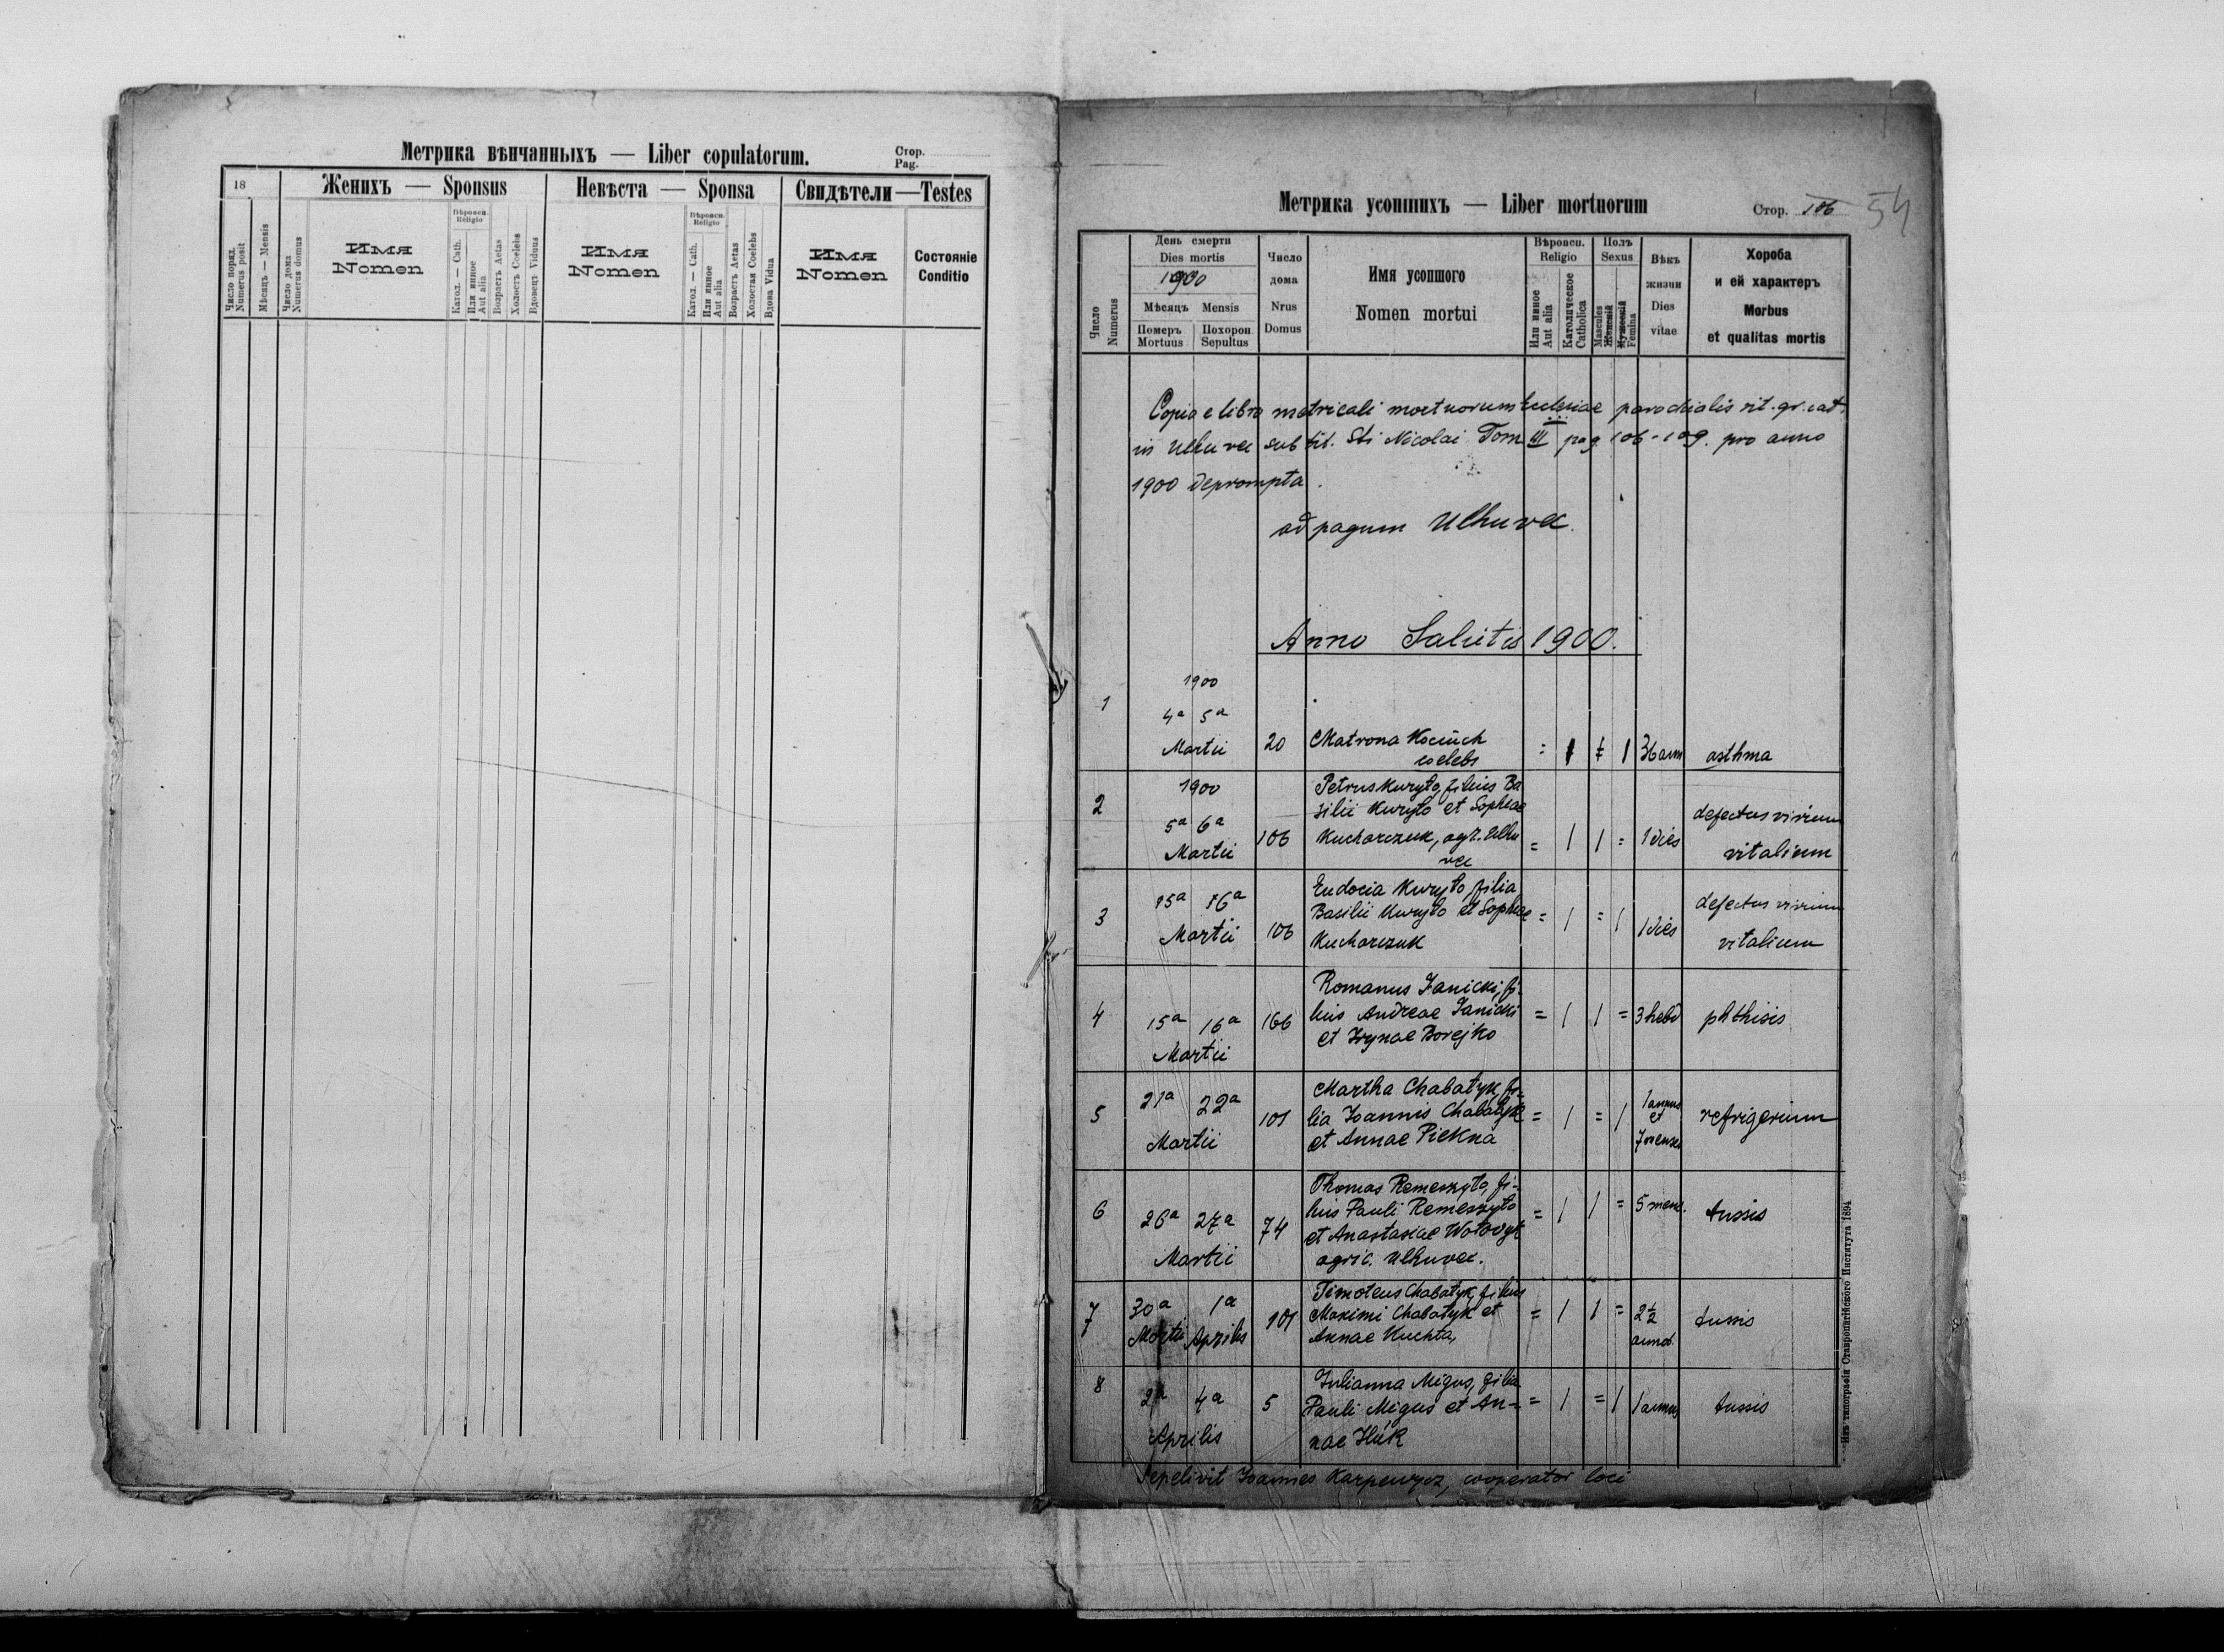 Метрика вѣнчанныхъ — Liber copulatorum.
Стор.
Pag.
18
Женихъ — Sponsus
Невѣста — Sponsa
Свидѣтели — Testes
Число поряд.
Numerus posit
Мѣсяцъ — Mensis
Число дома
Numerus domus
Имя
Nomen
Вѣроисп.
Religio
Катол. — Cath.
Или инное
Aut alia
Возрастъ Aetas
Холостъ Coelebs
Вдовецъ Viduus
Имя
Nomen
Вѣроисп.
Religio
Катол. — Cath.
Или инное
Aut alia
Возрастъ Aetas
Холостая Coelebs
Вдова Vidua
Имя
Nomen
Состояніе
Conditio
54
Метрика усопшихъ — Liber mortuorum
Стор. 106
Число
Numerus
День смерти
Dies mortis
1900
Мѣсяцъ Mensis
Померъ
Mortuus
Похорон.
Sepultus
Число
дома
Nrus
Domus
Имя усопшого
Nomen mortui
Вѣроисп.
Religio
Или инное
Aut alia
Католическое
Catholica
Полъ
Sexus
Mascules
Женскій
Мужескій
Femina
Вѣкъ
жизни
Dies
vitae
Хороба
и ей характеръ
Morbus
et qualitas mortis
Copia e libro metricali mortuorum Ecclesiae parochialis rit. gr. cat.
in Ulhuvek sub tit. Sti Nicolai Tom III pag. 106-109. pro anno
1900 deprompta.
ad pagum Ulhuvek.
Anno Salutis 1900.
1
1900
4a 5a
Martii
20
Matrona Kociuch
coelebs
= 1 = 1
36 ann
asthma
2
1900
5a 6a
Martii
106
Petrus Kuryło, filius Ba
silii Kuryło et Sophiae
Kucharczuk, agr. Ulhu
vek
= 1 1 =
1 dies
defectus virium
vitalium
3
15a 16a
Martii
106
Eudocia Kuryło, filia
Basilii Kuryło et Sophiae
Kucharczuk
= 1 = 1
1 dies
defectus virium
vitalium
4
15a 16a
Martii
166
Romanus Janicki, fi-
lius Andreae Janicki
et Irynae Borejko
= 1 1 =
3 hebd
phthisis
5
21a 22a
Martii
101
Martha Chabatyk, fi-
lia Joannis Chabatyk
et Annae Piekna
= 1 = 1
1 annus
et
7 menses
refrigerium
6
26a 27a
Martii
74
Thomas Remeszyło, fi-
lius Pauli Remeszyło
et Anastasiae
agric. Ulhuvek.
= 1 1 =
5 mens.
tussis
7
30a 1a
Martii Aprilis
101
Timoteus Chabatyk, filius
Maximi Chabatyk et
Annae Kuchta,
= 1 1 =
2 1/2
tussis
8
2a 4a
Aprilis
5
Julianna Migus, filia
Pauli Migus et An-
nae Huk
= 1 = 1
1 annus
tussis
Sepelivit Joannes Karpewycz, cooperator loci
Изъ типографіи Ставропигійского Института 1894